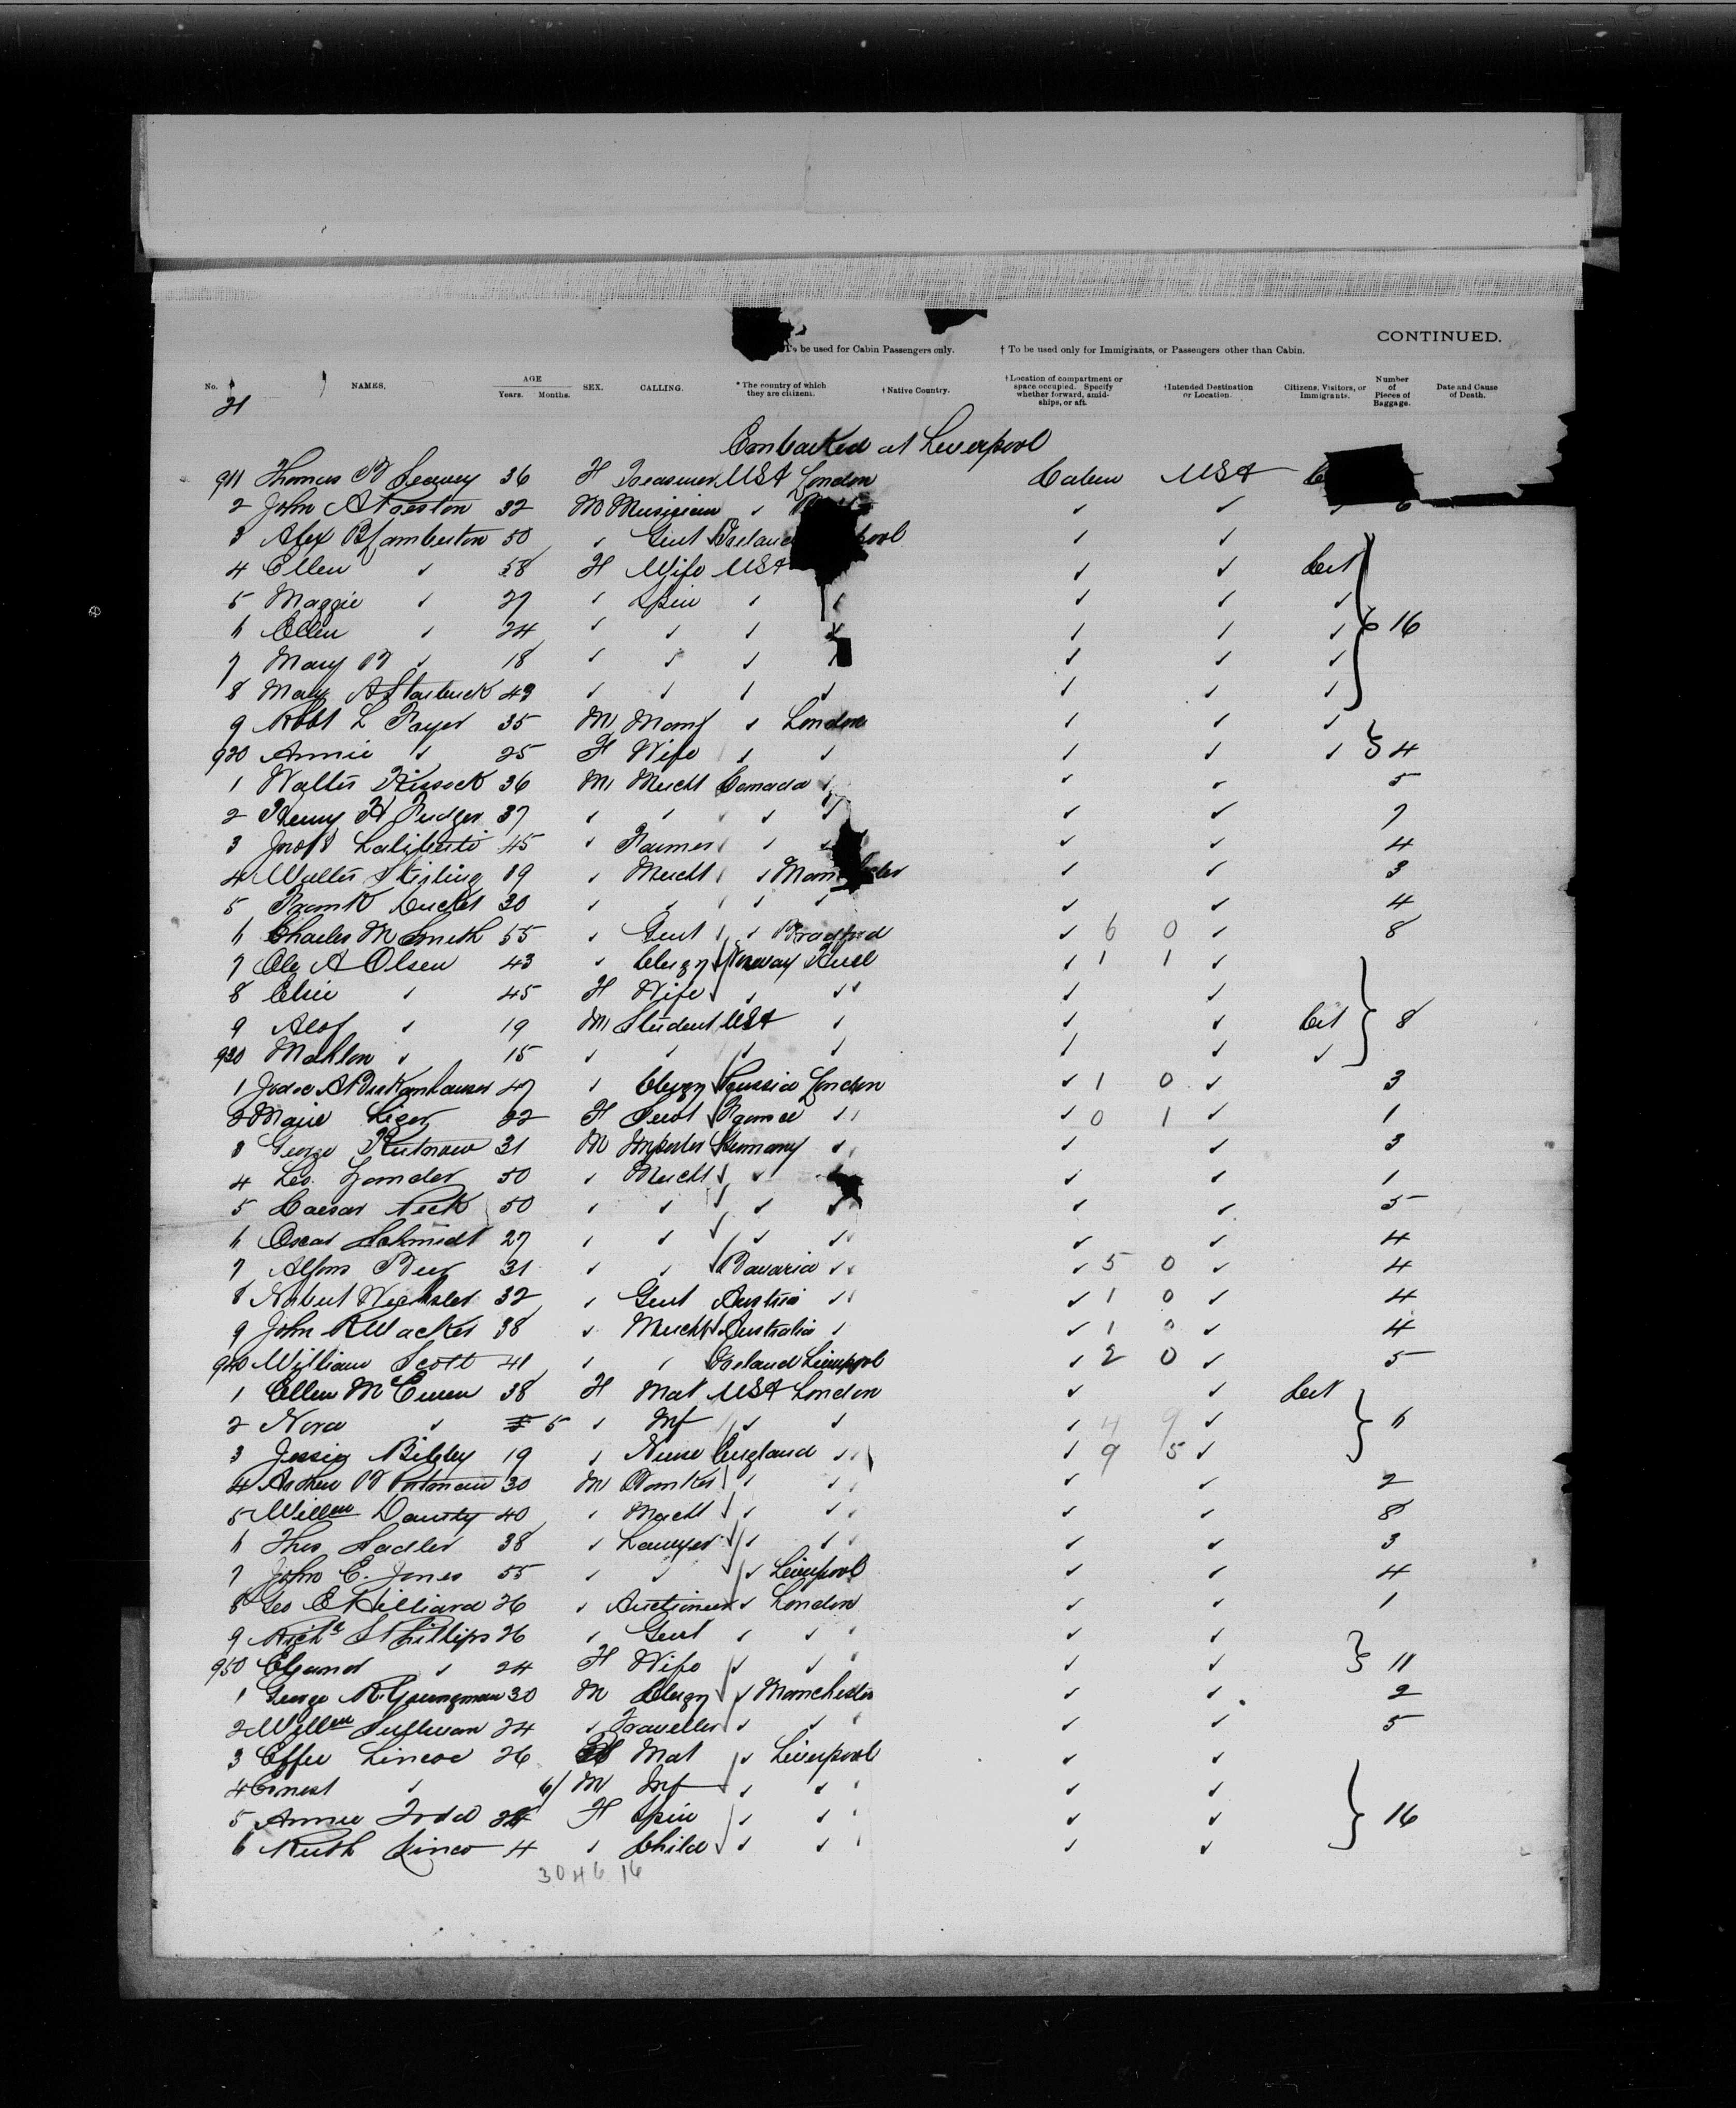 CONTINUED.
To be used for Cabin Passengers only. † To be used only for Immigrants, or Passengers other than Cabin.
No. NAMES. AGE Years. Months. SEX. CALLING. *The country of which they are citizens. †Native Country. †Location of compartment or space occupied. Specify whether forward, amidships, or aft. †Intended Destination or Location. Citizens, Visitors, or Immigrants. Number of Pieces of Baggage. Date and Cause of Death.
21
Embarked at Liverpool
911 Thomas 36 F Treasurer USA London Cabin USA
2 John A Preston 32 M Musician ✓ ✓ ✓ ✓ 6
3 Alex B Lamberton 50 ✓ Gent Ireland pool ✓ ✓
4 Ellen ✓ 58 F Wife USA ✓ ✓ Cit
5 Maggie ✓ 27 ✓ Spin ✓ ✓ ✓ ✓ ✓
6 Ellen ✓ 24 ✓ ✓ ✓ ✓ ✓ ✓ } 16
7 Mary ✓ 18 ✓ ✓ ✓ ✓ ✓ ✓
8 Mary A Starbuck 49 ✓ ✓ ✓ ✓ ✓ ✓ ✓
9 Robt L Fryer 35 M Manf ✓ London ✓ ✓ ✓
920 Annie ✓ 25 F Wife ✓ ✓ ✓ ✓ ✓ } 4
1 Walter Kissock 36 M Mercht Canada ✓ ✓ ✓ 5
2 Henry H Fudger 37 ✓ ✓ ✓ ✓ ✓ ✓ 7
3 Laliberte 45 ✓ Farmer ✓ ✓ ✓ ✓ 4
4 Walter Stirling 39 ✓ Mercht ✓ Manchester ✓ ✓ 3
5 Frank 30 ✓ ✓ ✓ ✓ ✓ ✓ 4
6 Charles M Smith 55 ✓ Gent ✓ Bradford ✓ 6 0 ✓ 8
7 Ole A Olsen 43 ✓ Clergy Norway ✓ 1 1 ✓
8 Elsie ✓ 45 F Wife ✓ ✓ ✓ ✓
9 Alof ✓ 19 M Student USA ✓ ✓ ✓ Cit } 8
930 Mahlon ✓ 15 ✓ ✓ ✓ ✓ ✓ ✓ ✓
1 47 ✓ Clergy Prussia London ✓ 1 0 ✓ 3
2 Marie 22 F Servt France ✓ ✓ 0 1 ✓ 1
3 George Kutnow 31 M Importer Germany ✓ ✓ ✓ 3
4 Leo. Zander 50 ✓ Mercht ✓ ✓ ✓ 1
5 Caesar Peck 50 ✓ ✓ ✓ ✓ ✓ ✓ 5
6 Oscar Schmidt 27 ✓ ✓ ✓ ✓ ✓ ✓ 4
7 Alfons 31 ✓ ✓ Bavaria ✓ ✓ 5 0 ✓ 4
8 Robert Wechsler 32 ✓ Gent Austria ✓ ✓ 1 0 ✓ 4
9 John R Wacker 38 ✓ Mercht Australia ✓ ✓ 1 0 ✓ 4
940 William Scott 41 ✓ ✓ Ireland Liverpool ✓ 2 0 ✓ 5
1 Ellen McEwen 38 F Mat USA London ✓ ✓ Cit
2 Nora ✓ 5 ✓ Inf ✓ ✓ ✓ 4 9 ✓ } 6
3 Jessie Bibby 19 ✓ Nurse England ✓ ✓ 9 5 ✓
4 Andrew Putman 30 M Banker ✓ ✓ ✓ ✓ 2
5 Willm 40 ✓ Mercht ✓ ✓ ✓ ✓ 8
6 Thos Sadler 38 ✓ Lawyer ✓ ✓ ✓ ✓ 3
7 John E. Jones 55 ✓ ✓ ✓ Liverpool ✓ ✓ 4
8 Geo E Hilliard 26 ✓ Auctioneer ✓ London ✓ ✓ 1
9 Richd S Phillips 26 ✓ Gent ✓ ✓ ✓ ✓
950 Eleanor ✓ 24 F Wife ✓ ✓ ✓ ✓ } 11
1 George R Youngman 30 M Clergy ✓ Manchester ✓ ✓ 2
2 Willm Sullivan 24 ✓ Traveller ✓ ✓ ✓ ✓ 5
3 Effie Lincoe 26 Mat ✓ Liverpool ✓ ✓
4 Ernest ✓ 6/ M Inf ✓ ✓ ✓ ✓
5 Annie Todd F Spin ✓ ✓ ✓ ✓ } 16
6 Ruth 4 ✓ Child ✓ ✓ ✓ ✓
30 46 16